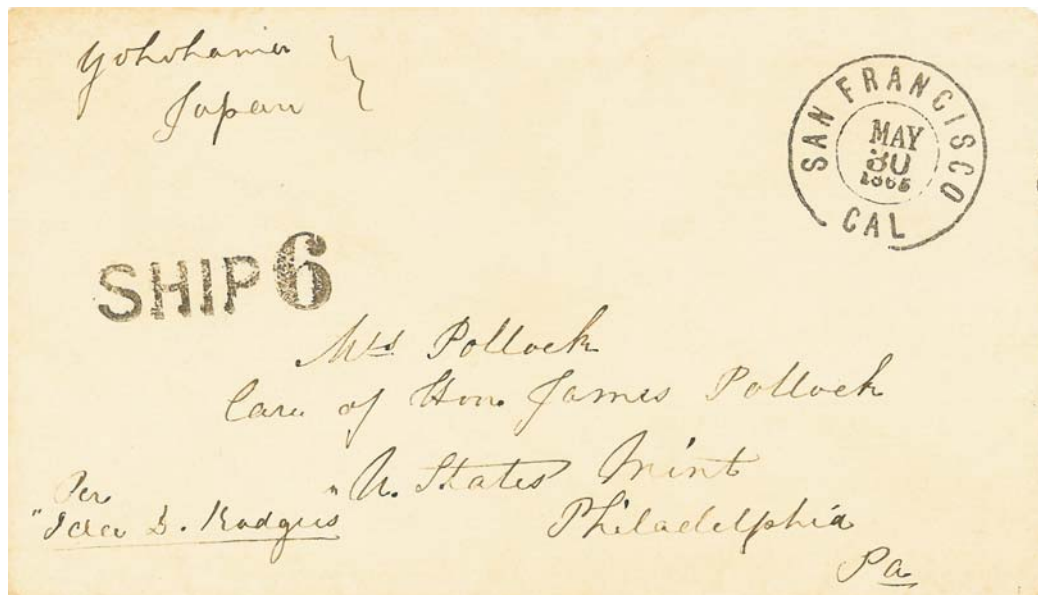 Yokohama
Japan
SAN FRANCISCO
MAY
30
1865
CAL
SHIP 6
Mrs Pollock
Care of Hon. James Pollock
U. States Mint
Philadelphia
Pa
Per
"Ida D. Rodgers"